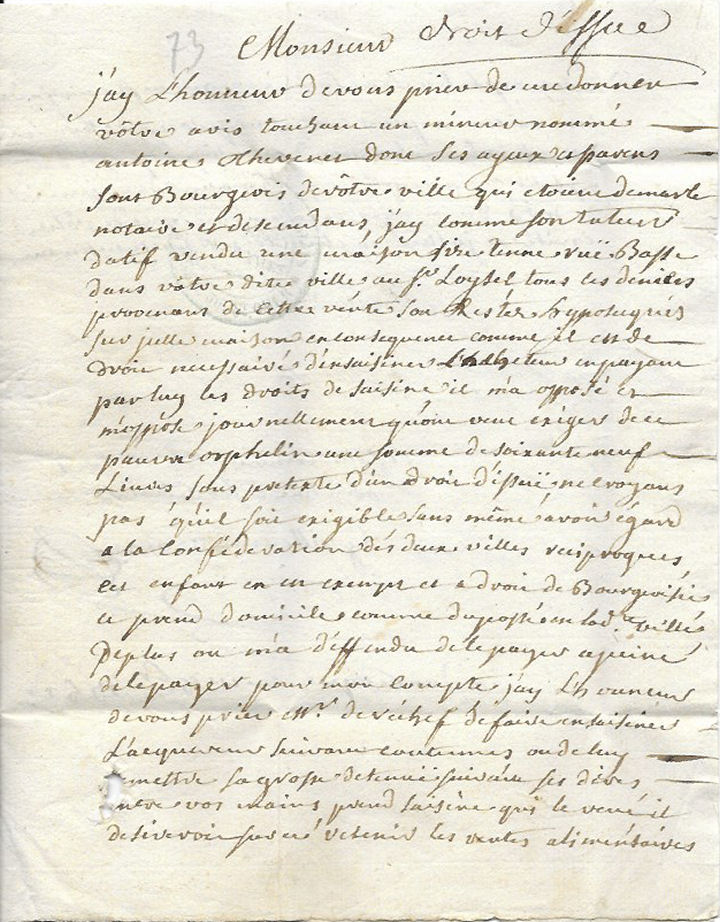 73
Monsieur droit d'issue
j'ay L'honneur de vous prier de me donner
vôtre avis touchant un mineur nommé
antoine Thevenet dont ses ayeux et parens
sont Bourgeois de vôtre ville qui etoient demarle
notaire et descendans, j'ay comme son tuteur
datif vendu une maison size tenne ruë Basse
dans vôtre dite ville au Sr. Loysel tous ces deniers
provenant de cette vente son Restés hypotequés
sur jcelle maison en consequence comme il est de
droit necessaire d'ensaisiner L'acheteur en payant
par luy les droits de saisine il m'a opposé et
m'oppose journellement qu'on veut exiger de ce
pauvre orphelin une somme de soixante neuf
Livres sous pretexte d'un droit d'issuë ne croyant
pas qu'il soit exigible sans même avoir égard
a la Confédération des deux villes reciproques,
cet enfant en est exempt et a droit de Bourgeoisie
ce prend domicile comme duposté en lad.te ville
Deplus on m'a deffendu de le payer a peine
de le payer pour mon compte j'ay L'honneur
de vous prier Mr. de réchef de faire ensaisiner
L'acquereur suivant coutumes ou de luy
remettre sa grosse de tenuë suivant ses dires
entre vos mains prend saisine qui le
les ventes alimentaires